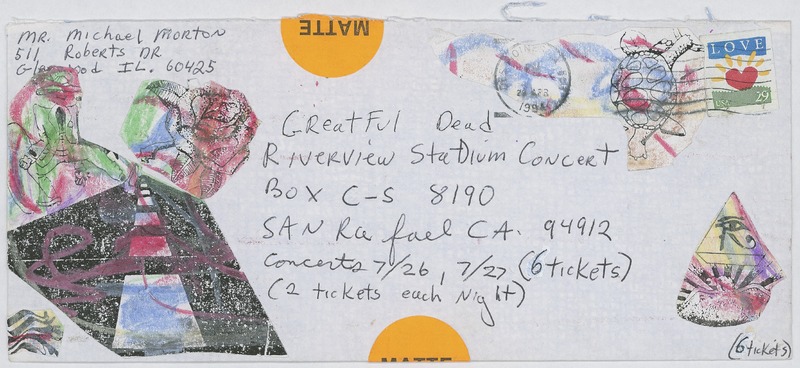 MR. Michael MORTON
511 Roberts DR
Glenwood IL. 60425
MATTE
LOVE
USA 29
Greatful Dead
Riverview Stadium Concert
BOX C-S 8190
SAN Rafael CA. 94912
Concerts 7/26, 7/27 (6 tickets)
(2 tickets each Night)
MATTE
(6 tickets)